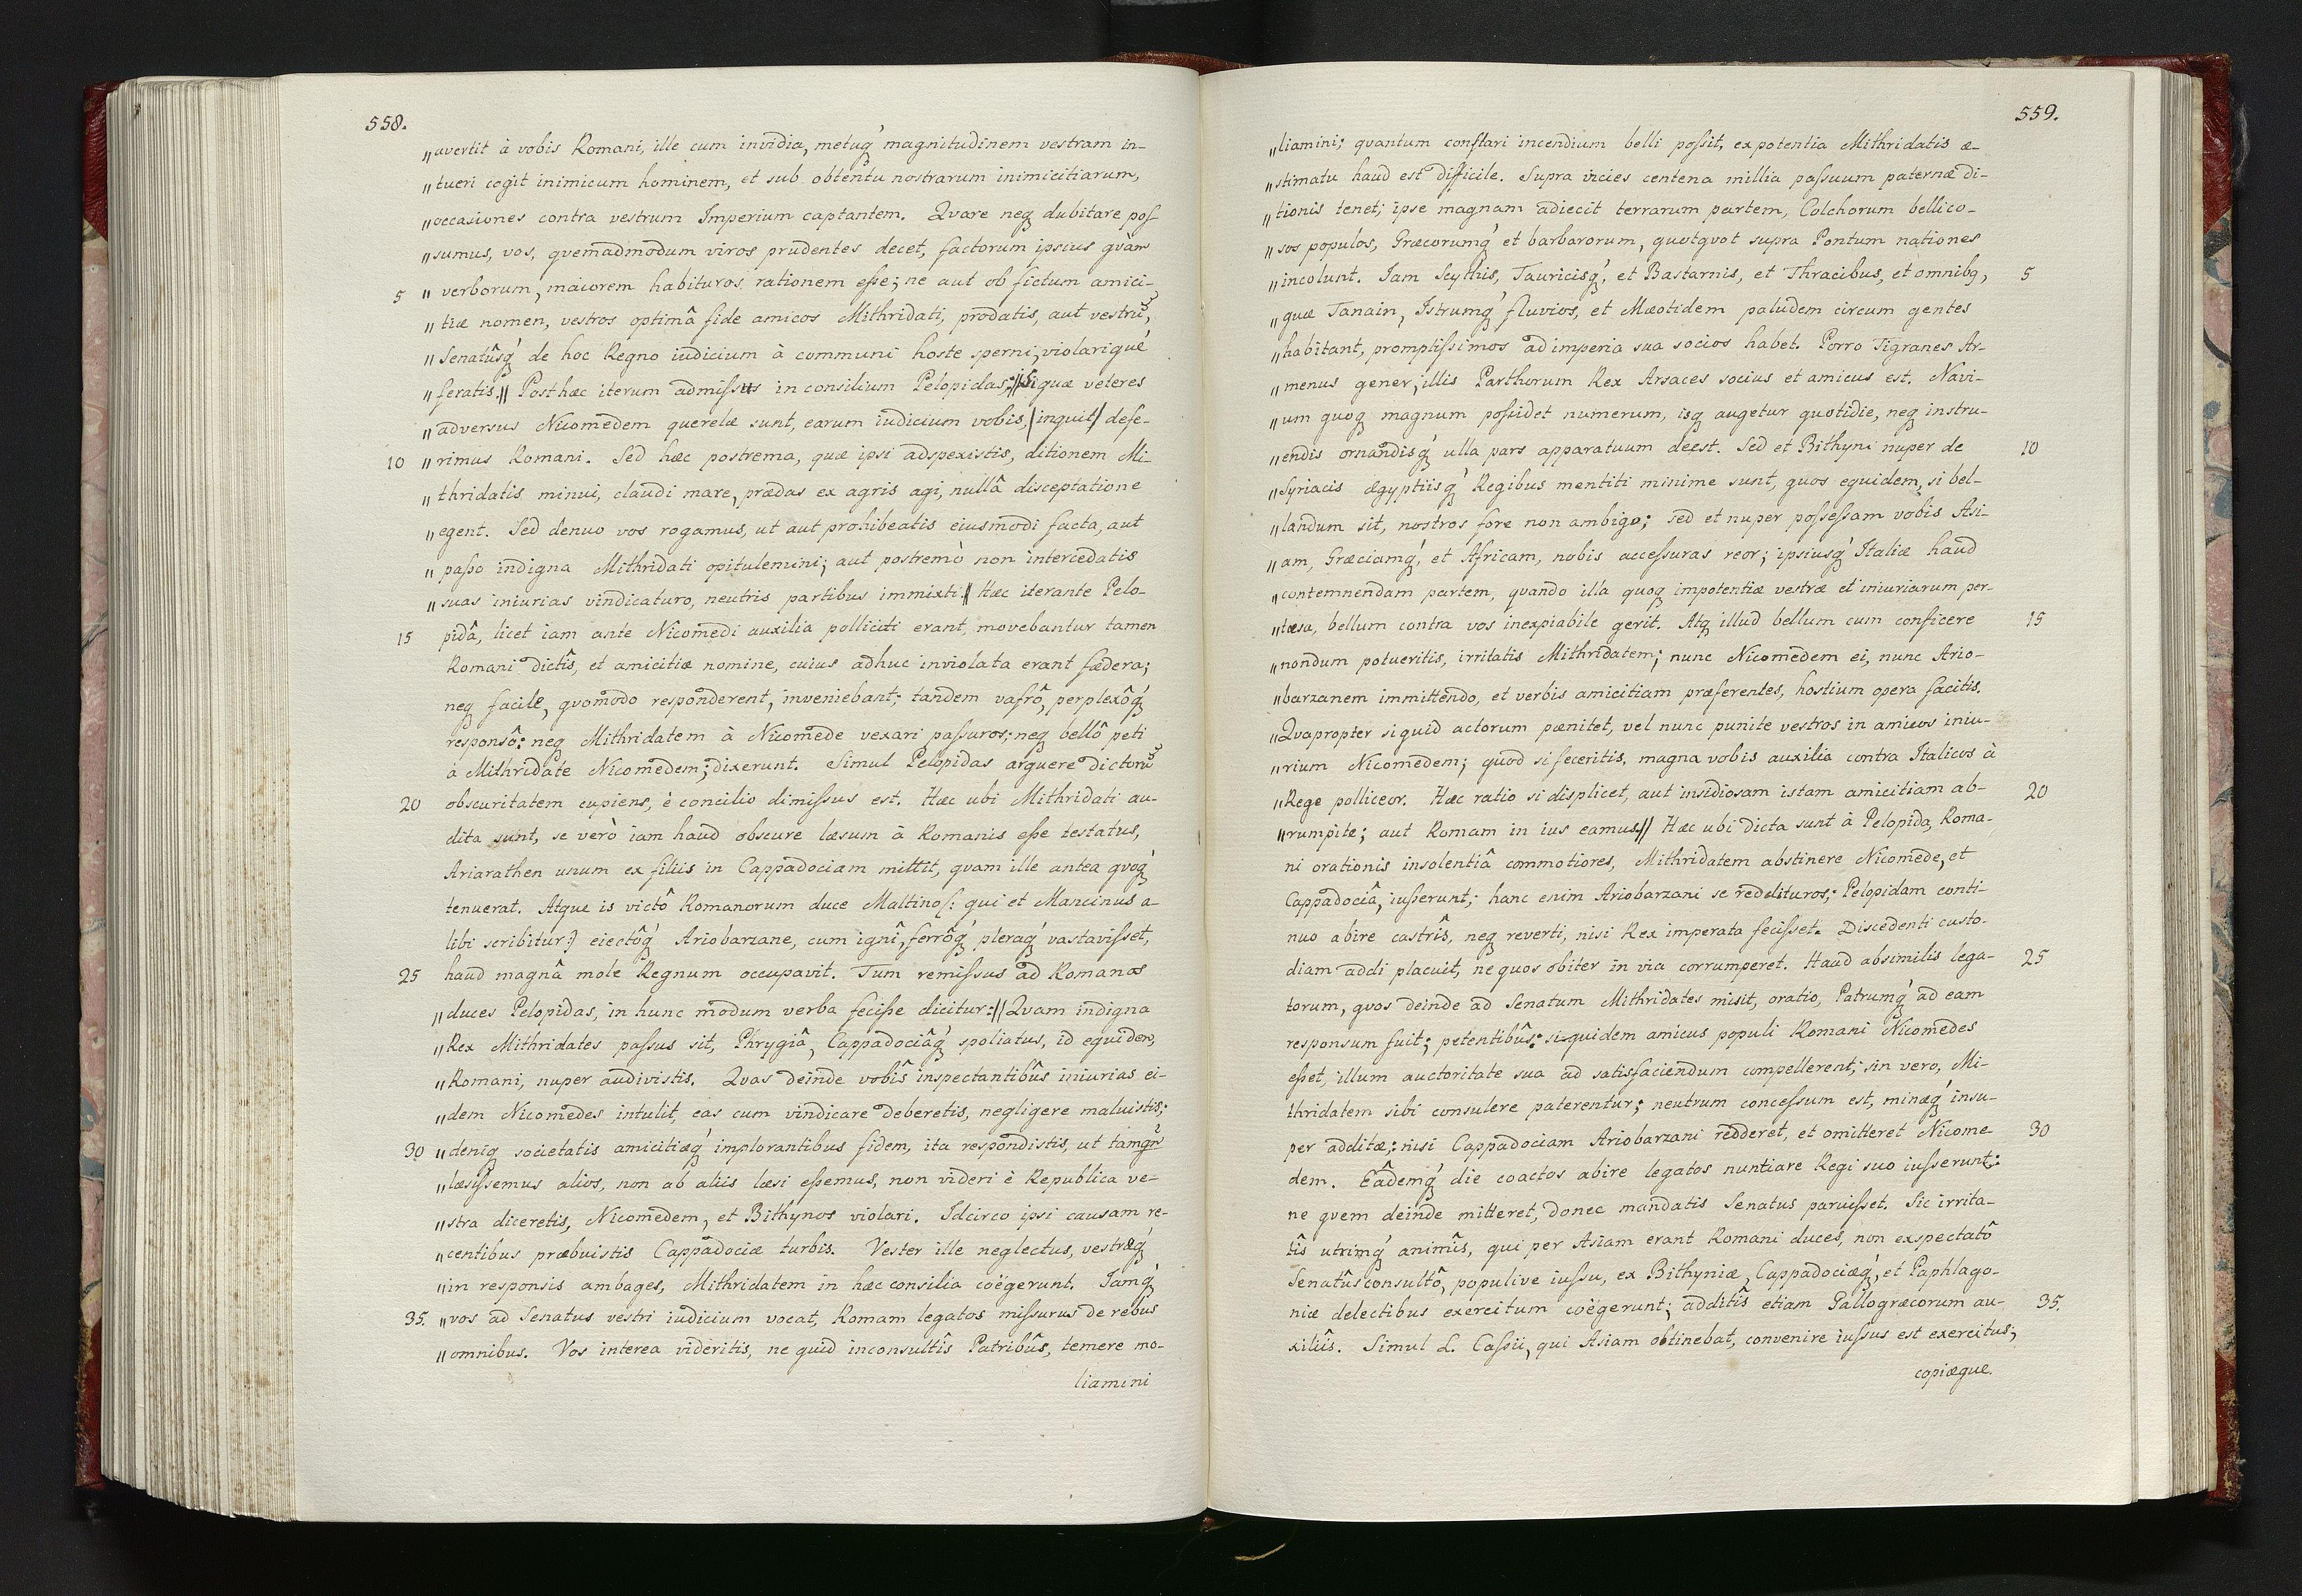 558.
„avertit à vobis Romani, ille cum invidia, metuq́ magnitudinem vestram in-
„tueri cogit inimicum hominem, et sub obtentu nostrarum inimicitiarum,
„occasiones contra vestrum Imperium captantem. Qvare neq dubitare pos-
„sumus, vos, qvemadmodum viros prudentes decet, factorum ipsius qvàm
5 „verborum, maiorem habituros rationem esse; ne aut ob fictum amici-
„tiæ nomen, vestros optimâ fide amicos Mithridati, prodatis, aut vestrũ,
„Senatûsq́ de hoc Regno iudicium à communi hoste sperni, violarique
„feratis.// Post hæc iterum admissus in consilium Pelopidas;// Si quæ veteres
„adversus Nicomedem querelæ sunt, earum iudicium vobis, /inquit/ defe-
10 „rimus Romani. Sed hæc postrema, quæ ipsi adspexistis, ditionem Mi-
„thridatis minui, claudi mare, prædas ex agris agi, nullâ disceptatione
„egent. Sed denuo vos rogamus, ut aut prohibeatis eiusmodi facta, aut
„passo indigna Mithridati opitulemini; aut postremò non intercedatis
„suas iniurias vindicaturo, neutris partibus immixti.// Hæc iterante Pelo-
15 pidâ, licet iam ante Nicomedi auxilia polliciti erant, movebantur tamen
Romani dictîs, et amicitiæ nomine, cuius adhuc inviolata erant fædera;
neq facile, qvomodo responderent, inveniebant; tandem vafrô, perplexôq́
responsô: neq Mithridatem à Nicomede vexari passuros; neq bellô peti
a Mithridate Nicomedem; dixerunt. Simul Pelopidas arguere dictorũ
20 obscuritatem cupiens, è concilio dimissus est. Hæc ubi Mithridati au-
dita sunt, se verò iam haud obscure læsum à Romanis esse testatus,
Ariarathen unum ex filiis in Cappadociam mittit, qvam ille antea qvoq́
tenuerat. Atque is victô Romanorum duce Maltino/: qui et Mancinus a-
libi scribitur:/ eiectôq́ Ariobarzane, cum ignî, ferrôq́ pleraq́ vastavisset,
25 haud magnâ mole Regnum occupavit. Tum remissus ad Romanos
„duces Pelopidas, in hunc modum verba fecisse dicitur:// Qvam indigna
„Rex Mithridates passus sit, Phrygiâ, Cappadociâq́ spoliatus, id equidem,
„Romani, nuper audivistis. Qvas deinde vobîs inspectantibûs iniurias ei-
„dem Nicomedes intulit, eas cum vindicare deberetis, negligere maluistis;
30 „deniq societatis amicitiæq́ implorantibus fidem, ita respondistis, ut tamqũ
„læsissemus alios, non ab aliis læsi essemus, non videri è Republica ve-
„stra diceretis, Nicomedem, et Bithynos violari. Idcirco ipsi causam re-
„centibus præbuistis Cappadociæ turbis. Vester ille neglectus, vestræq́
„in responsis ambages, Mithridatem in hæc consilia coëgerunt. Iamq́
35. „vos ad Senatus vestri iudicium vocat, Romam legatos missurus de rebus
„omnibus. Vos interea videritis, ne quid inconsultîs Patribûs, temere mo-
liamini
559.
„liamini; qvantum conflari incendium belli possit, ex potentia Mithridatis æ-
„stimatu haud est difficile. Supra vicies centena millia passuum paternæ di-
„tionis tenet; ipse magnam adiecit terrarum partem, Colchorum bellico-
„sos populos, Græcorumq́ et barbarorum, quotqvot supra Pontum nationes
„incolunt. Iam Scythis, Tauricisq́, et Bastarnis, et Thracibus, et omnibq, 5
„quæ Tanain, Istrumq́ fluvios, et Mæotidem paludem circum gentes
„habitant, promptissimos ad imperia sua socios habet. Porro Tigranes Ar-
„menus gener, illis Parthorum Rex Arsaces socius et amicus est. Navi-
„um quoq magnum possidet numerum, isq augetur quotidie, neq instru-
„endis ornandisq́ ulla pars apparatuum deest. Sed et Bithyni nuper de 10
„Syriacis Ægyptiisq́ Regibus mentiti minime sunt, quos equidem, si bel-
„landum sit, nostros fore non ambigo; sed et nuper possessam vobis Asi-
„am, Græciamq́, et Africam, nobis accessuras reor; ipsiusq́ Italiæ haud
„contemnendam partem, qvando illa quoq impotentiæ vestræ et iniuriarum per-
„tæsa, bellum contra vos inexpiabile gerit. Atq illud bellum cum conficere 15
„nondum potueritis, irritatis Mithridatem; nunc Nicomedem ei, nunc Ario-
„barzanem immittendo, et verbis amicitiam præferentes, hostium opera facitis.
„Qvapropter si quid actorum pænitet, vel nunc punite vestros in amicos iniu-
„rium Nicomedem; quod si feceritis, magna vobis auxilia contra Italicos à
„Rege polliceor. Hæc ratio si displicet, aut insidiosam istam amicitiam ab- 20
„rumpite; aut Romam in ius eamus.// Hæc ubi dicta sunt à Pelopida, Roma-
ni orationis insolentiâ commotiores, Mithridatem abstinere Nicomede, et
Cappadociâ, iusserunt; hanc enim Ariobarzani se reddituros; Pelopidam conti-
nuo abire castrîs, neq reverti, nisi Rex imperata fecisset. Discedenti custo-
diam addi placuit, ne quos obiter in via corrumperet. Haud absimilis lega- 25
torum, qvos deinde ad Senatum Mithridates misit, oratio, Patrumq́ ad eam
responsum fuit; petentibûs: si quidem amicus populi Romani Nicomedes
esset, illum auctoritate sua ad satisfaciendum compellerent; sin vero, Mi-
thridatem sibi consulere paterentur; neutrum concessum est, minæq́ insu-
per additæ: nisi Cappadociam Ariobarzani redderet, et omitteret Nicome- 30
dem. Eâdemq́ die coactos abire legatos nuntiare Regi suo iusserunt:
ne qvem deinde mitteret, donec mandatis Senatus paruisset. Sic irrita-
tîs utrimq́ animîs, qui per Asiam erant Romani duces, non exspectatô
Senatûsconsultô, populive iussu, ex Bithyniæ, Cappadociæq́, et Paphlago-
niæ delectibus exercitum coëgerunt; additîs etiam Gallogræcorum au- 35.
xiliîs. Simul L. Cassii, qui Asiam obtinebat, convenire iussus est exercitus;
copiæque.